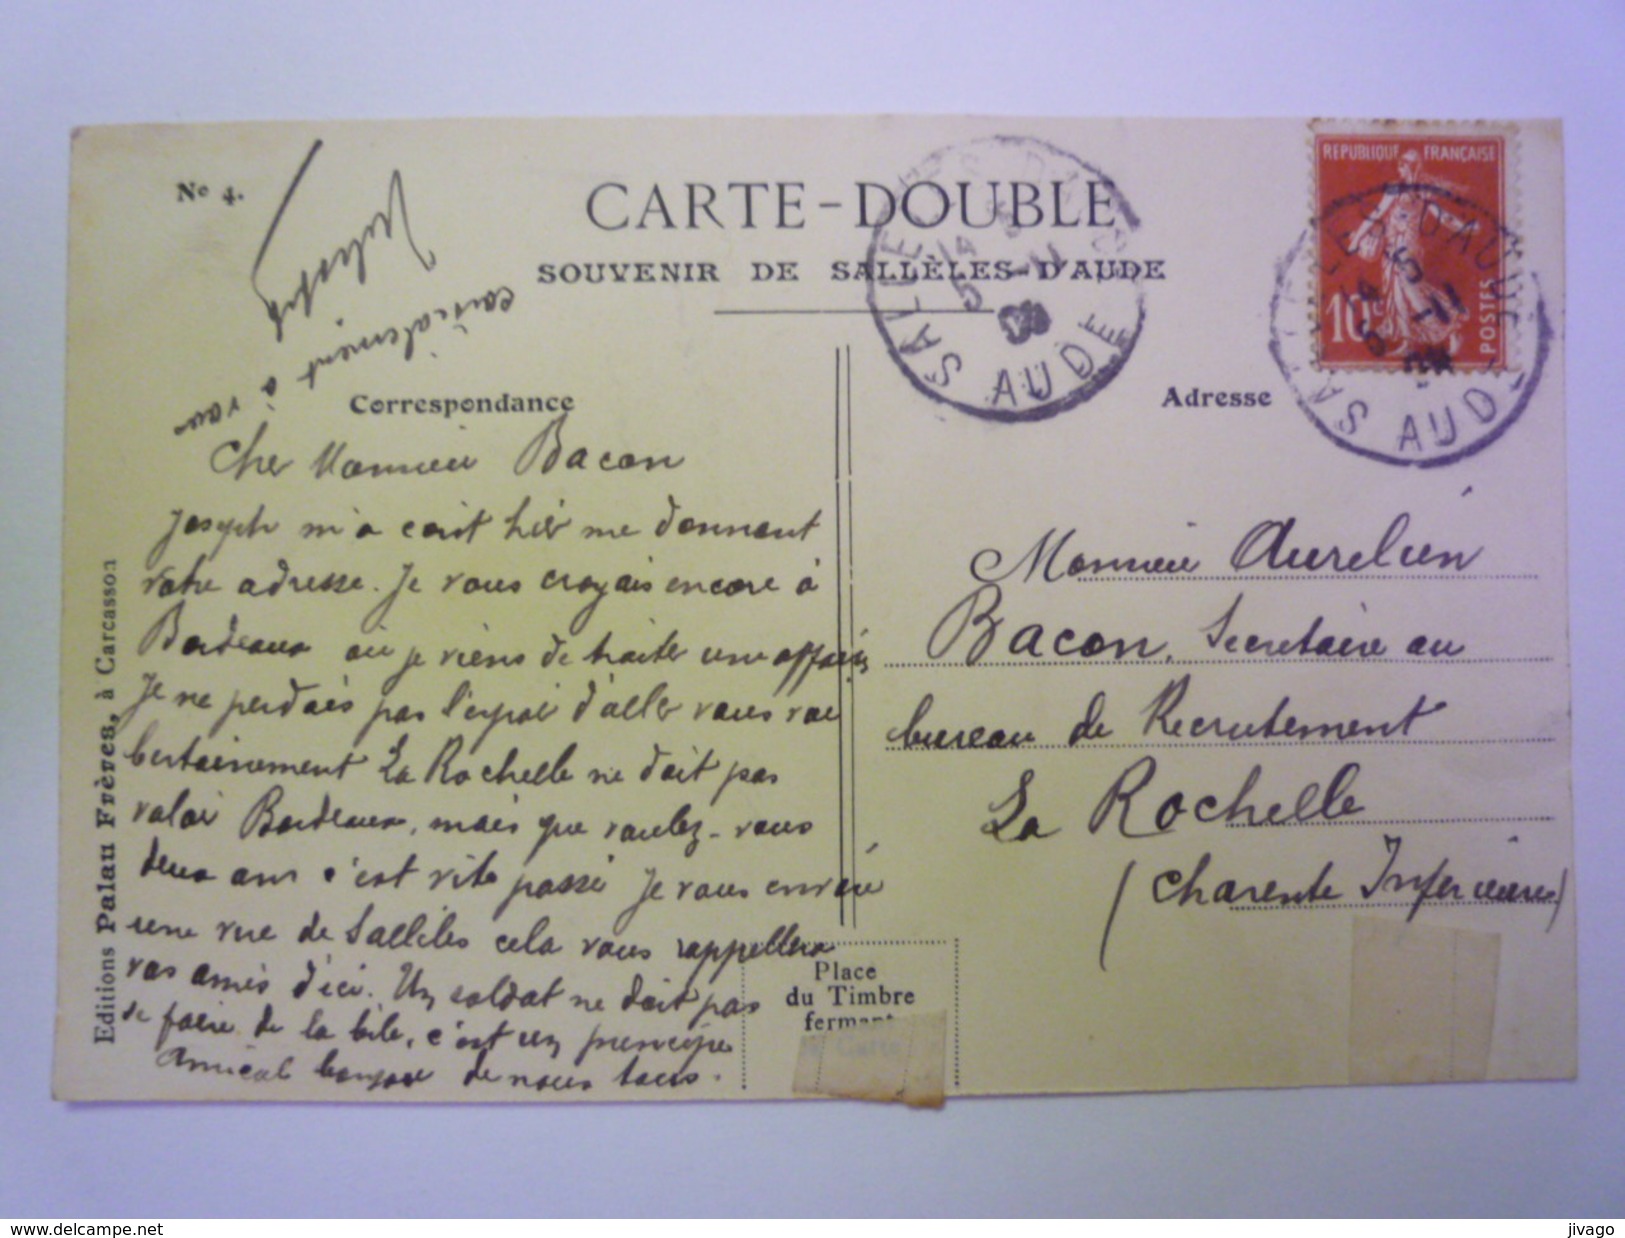 No 4.
CARTE-DOUBLE
SOUVENIR DE SALLÈLES-D'AUDE
Correspondance
Adresse
REPUBLIQUE FRANÇAISE
10c
POSTES
SALLELES D'AUDE
AUDE
cordialement à vous
Cher Monsieur Bacon
Joseph m'a écrit hier me donnant
votre adresse. Je vous croyais encore à
Bordeaux où je viens de traiter une affaire,
Je ne perdais pas l'espoir d'aller vous voir
Certainement La Rochelle ne doit pas
valoir Bordeaux, mais que voulez-vous
deux ans c'est vite passé Je vous envoie
une vue de Sallèles cela vous rappellera
vos amis d'ici. Un soldat ne doit pas
se faire de la bile, c'est un principe
Amical bonjour de nous tous.
Monsieur Aurelien
Bacon, Secretaire au
bureau de Recrutement
La Rochelle
(Charente Inferieure)
Place
du Timbre
fermant
la Carte
Editions Palau Frères, à Carcasson
www.delcampe.net
jivago